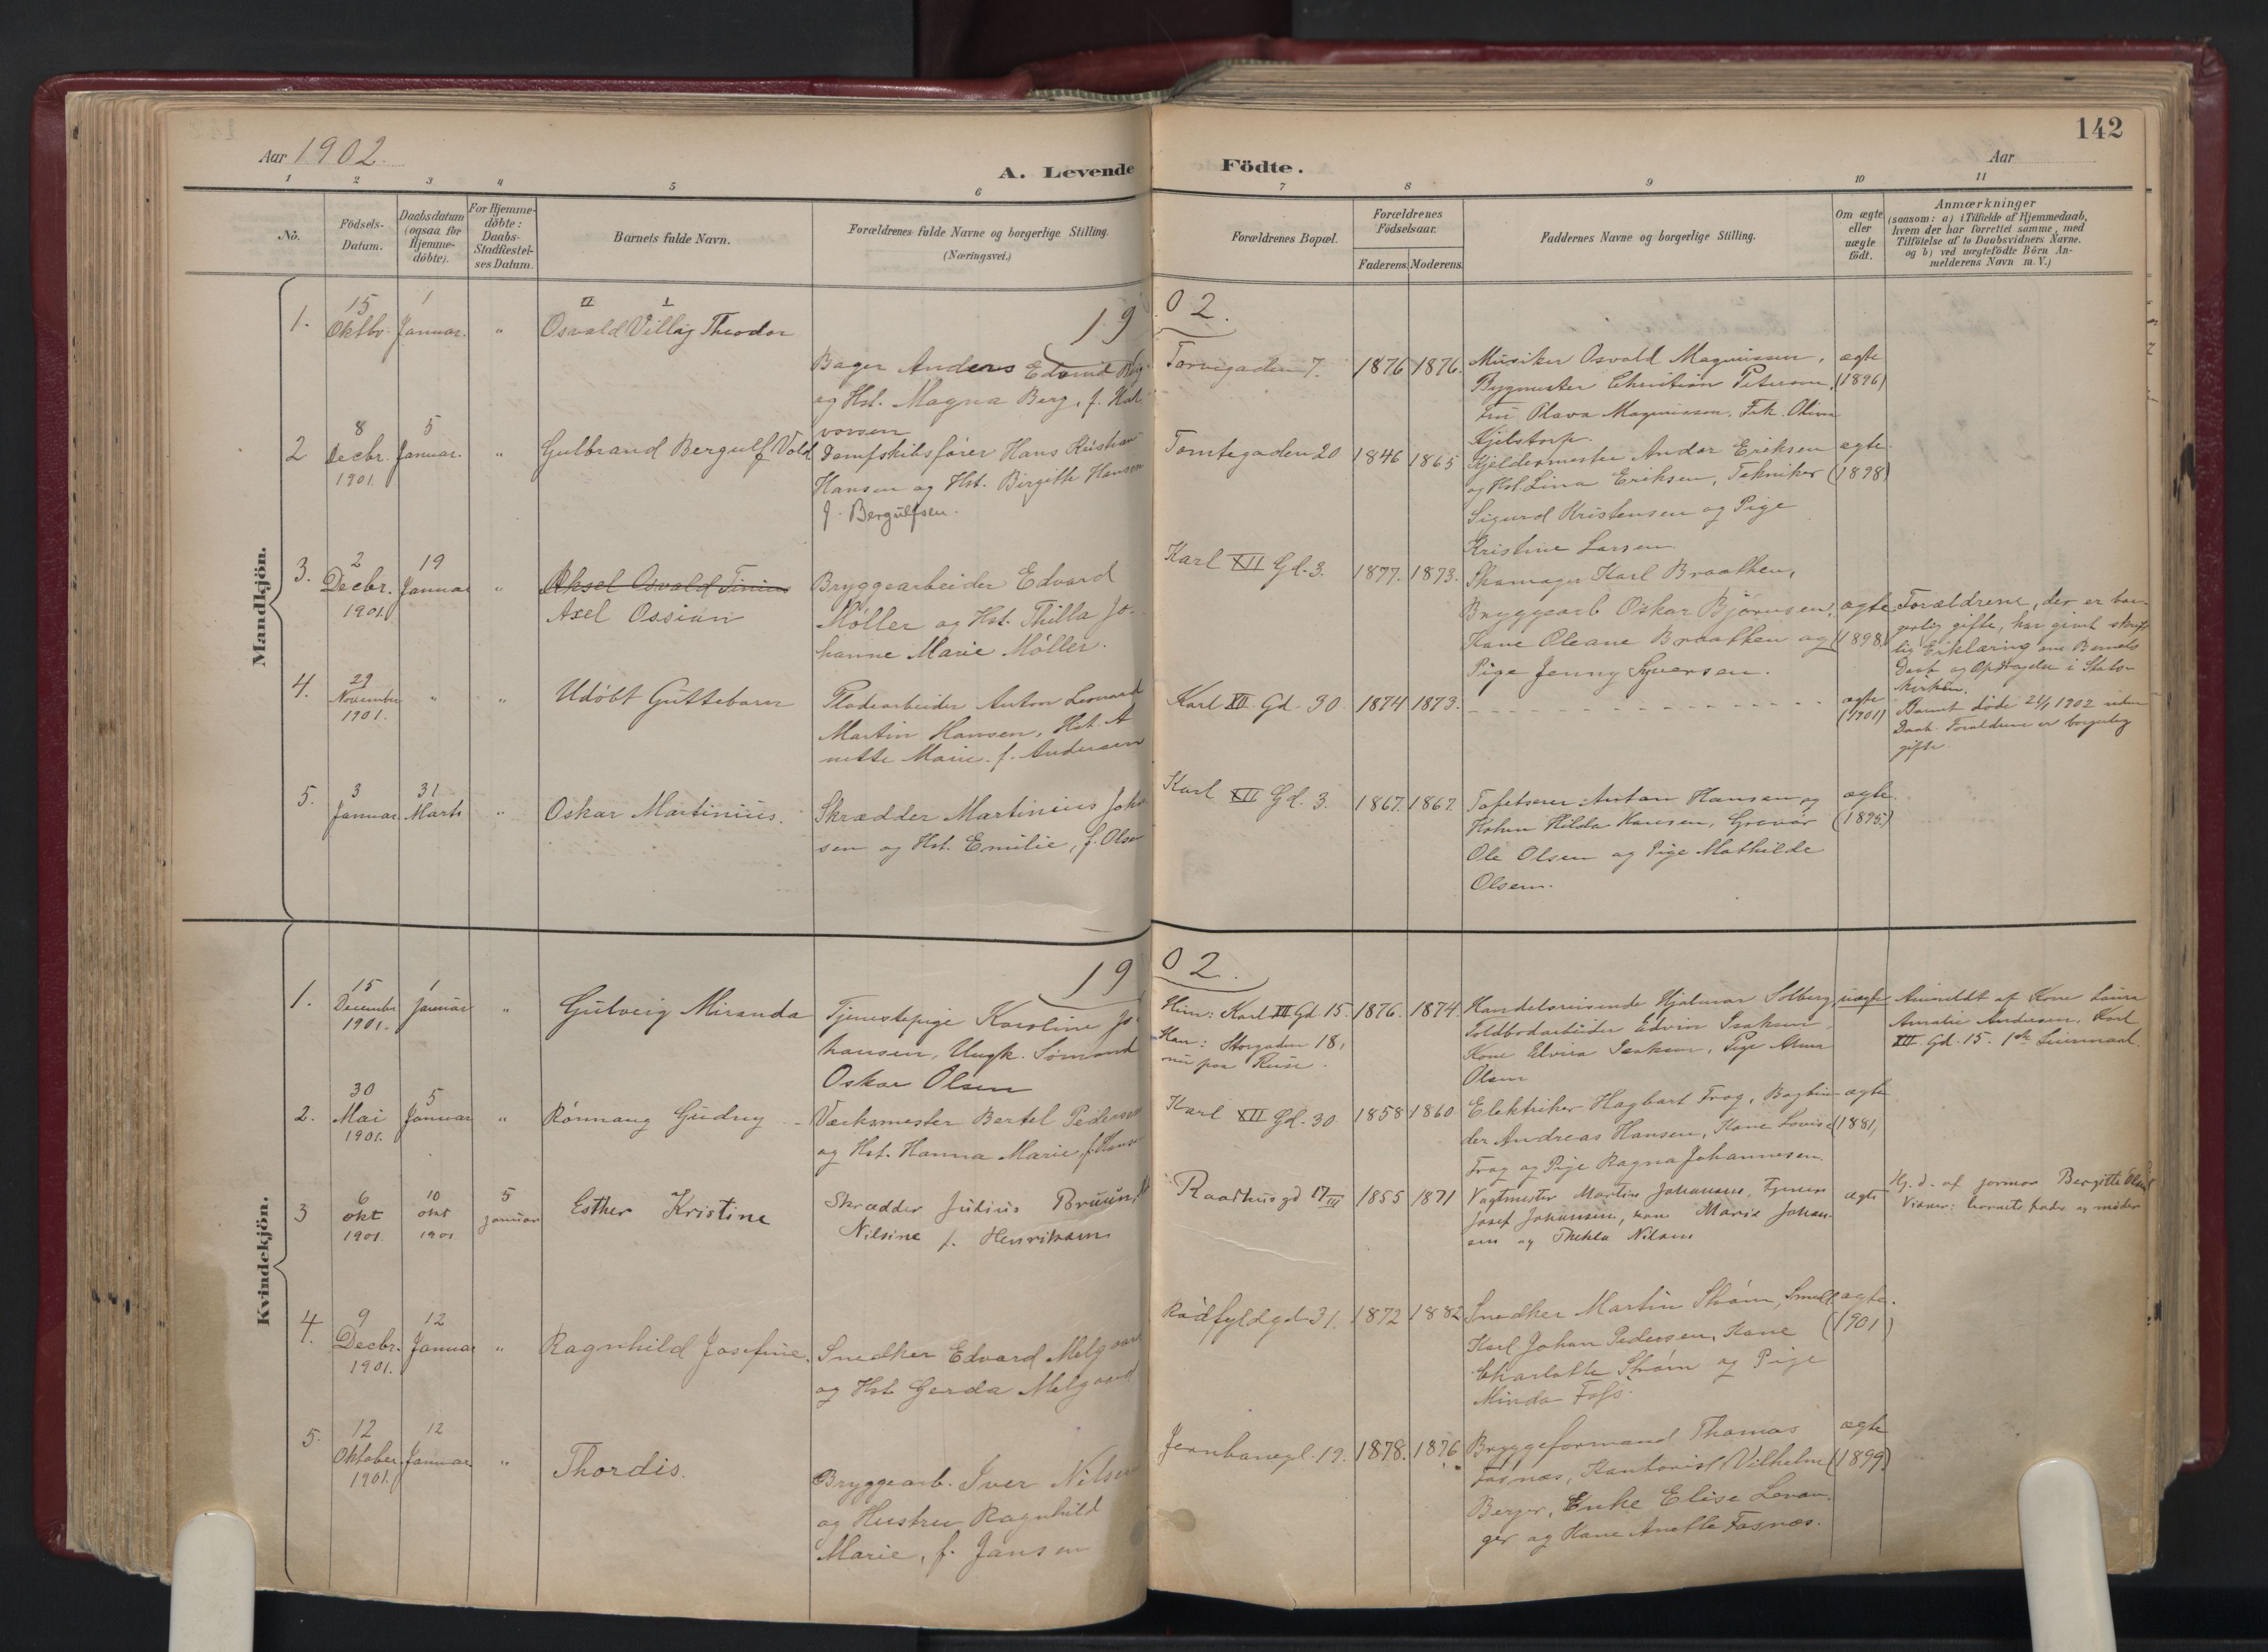 142
Aar 1902.
Aar
A. Levende Födte.
1 2 3 4 5 6 7 8 9 10 11
Nö.
Födsels-
Datum.
Daabsdatum
(ogsaa for
Hjemme-
döbte).
For Hjemme-
döbte:
Daabs-
Stadfæstel-
ses Datum.
Barnets fulde Navn.
Forældrenes fulde Navne og borgerlige Stilling.
(Næringsvei.)
Forældrenes Bopæl.
Forældrenes
Födselsaar.
Faderens. Moderens.
Faddernes Navne og borgerlige Stilling.
Om ægte
eller
uægte
födt.
Anmærkninger
(saasom: a) i Tilfælde af Hjemmedaab,
hvem der har forrettet samme, med
Tilföielse af to Daabsvidners Navne.
og b) ved uægtefödte Börn An-
melderens Navn m. V.)
Mandkjön.
1902.
1.
15
Oktbr.
1
Januar.
"
II I
Osvald Villy Theodor
Bager Anders Edvind Berg
og Hst. Magna Berg, f. Hal
vorsen
Torvegaden 7.
1876 1876.
Musiker Osvald Magnussen,
Bygmester Christian Petersen,
Fru Olava Magnussen, Frk. Oliva
Kjelstorp.
ægte
(1896)
2
8
Decbr.
1901.
5
Januar.
"
Gulbrand Bergulf Vold
Dampskibsfører Hans Kristian
Hansen og Hst. Birgitte Hansen
f. Bergulfsen.
Tomtegaden 20
1846 1865
Kjeldermester Andor Eriksen
og Hst. Lina Eriksen, Tekniker
Sigurd Kristensen og Pige
Kristine Larsen
ægte
(1898)
3.
2
Decbr.
1901.
19
Januar
"
Aksel Osvald Tinius
Axel Ossian
Bryggearbeider Edvard
Møller og Hst. Thilla Jo-
hanne Marie Møller.
Karl XII Gd. 3.
1877. 1873.
Skomager Karl Braathen,
Bryggearb Oskar Bjørnsen,
Kone Oleane Braathen og
Pige Jenny Syversen.
ægte
(1898)
Forældrene, der er bor-
gerlig gifte, har givet skrift
lig Erklæring om Barnets
Daab og Opdragelse i Stats-
kirken.
4.
29
November
1901.
"
"
Udøbt Guttebarn
Pladearbeider Anton Leonard
Martin Hansen, Hst. A
nette Marie f. Andersen
Karl XII Gd. 30
1874 1873.
ægte
(1901)
Barnet døde 2/1 1902 uden
Daab. Forældrene er borgerlig
gifte
5.
3
Januar.
31
Marts
"
Oskar Martinius.
Skrædder Martinius Johan
sen og Hst. Emilie, f. Olsen
Karl XII Gd. 3.
1867. 1867.
Tapetserer Anton Hansen og
Kone Hilda Hansen, Gravør
Ole Olsen og Pige Mathilde
Olsen.
ægte
(1895.)
Kvindekjön.
1902.
1.
15
December
1901.
1
Januar
"
Gulveig Miranda
Tjenestepige Karoline Jo
hansen, Ungk. Sømand
Oskar Olsen
Hun: Karl XII Gd. 15.
Han: Storgaden 18,
nu paa Reise.
1876. 1874.
Handelsreisende Hjalmar Solberg,
Toldbodarbeider Edvin Isaksen,
Kone Elvira Isaksen, Pige Anna
Olsen
uægte
Anmeldt af Kone Laura
Amalie Andersen, Karl
XII Gd. 15. 1ste Leiermaal.
2.
30
Mai
1901.
5
Januar
"
Rønnaug Gudny
Værksmester Bertel Pedersen
og Hst. Hanna Marie, f. Hansen
Karl XII Gd. 30
1858 1860
Elektriker Hagbart Frog, Bogbin-
der Andreas Hansen, Kone Lovise
Frog og Pige Ragna Johannesen.
ægte
(1881)
3
6
okt
1901.
10
okt
1901
5
januar
Esther Kristine
Skrædder Julius Bruun,
Nilsine f. Henriksen
Raadhusgd 17 III
1855 1871
Vagtmester Martin Johansen,
Josef Johansen, kone Marie Johan-
sen og Thekla Nilsen
ægte
Hj. d. af jormor Bergitte Olsen
Vidner: barnets fader og moder
4.
9
Decbr.
1901.
12
Januar
"
Ragnhild Josefine.
Snedker Edvard Melgaard
og Hst. Gerda Melgaard
Rødfyldgd. 31.
1872 1882
Snedker Martin Strøm, Smed
Karl Johan Pedersen, Kone
Charlotte Strøm og Pige
Minda Foss.
ægte.
(1901)
5.
12
Oktober
1901.
12
Januar
"
Thordis.
Bryggearb. Iver Nilsen
og Hustru Ragnhild
Marie, f. Jansen
Jernbanegd. 19.
1878. 1876
Bryggeformand Thomas
Fosnæs, Kontorist Vilhelm
Berger, Enke Elise Levan-
ger og Kone Anette Fosnæs.
ægte
(1899.)